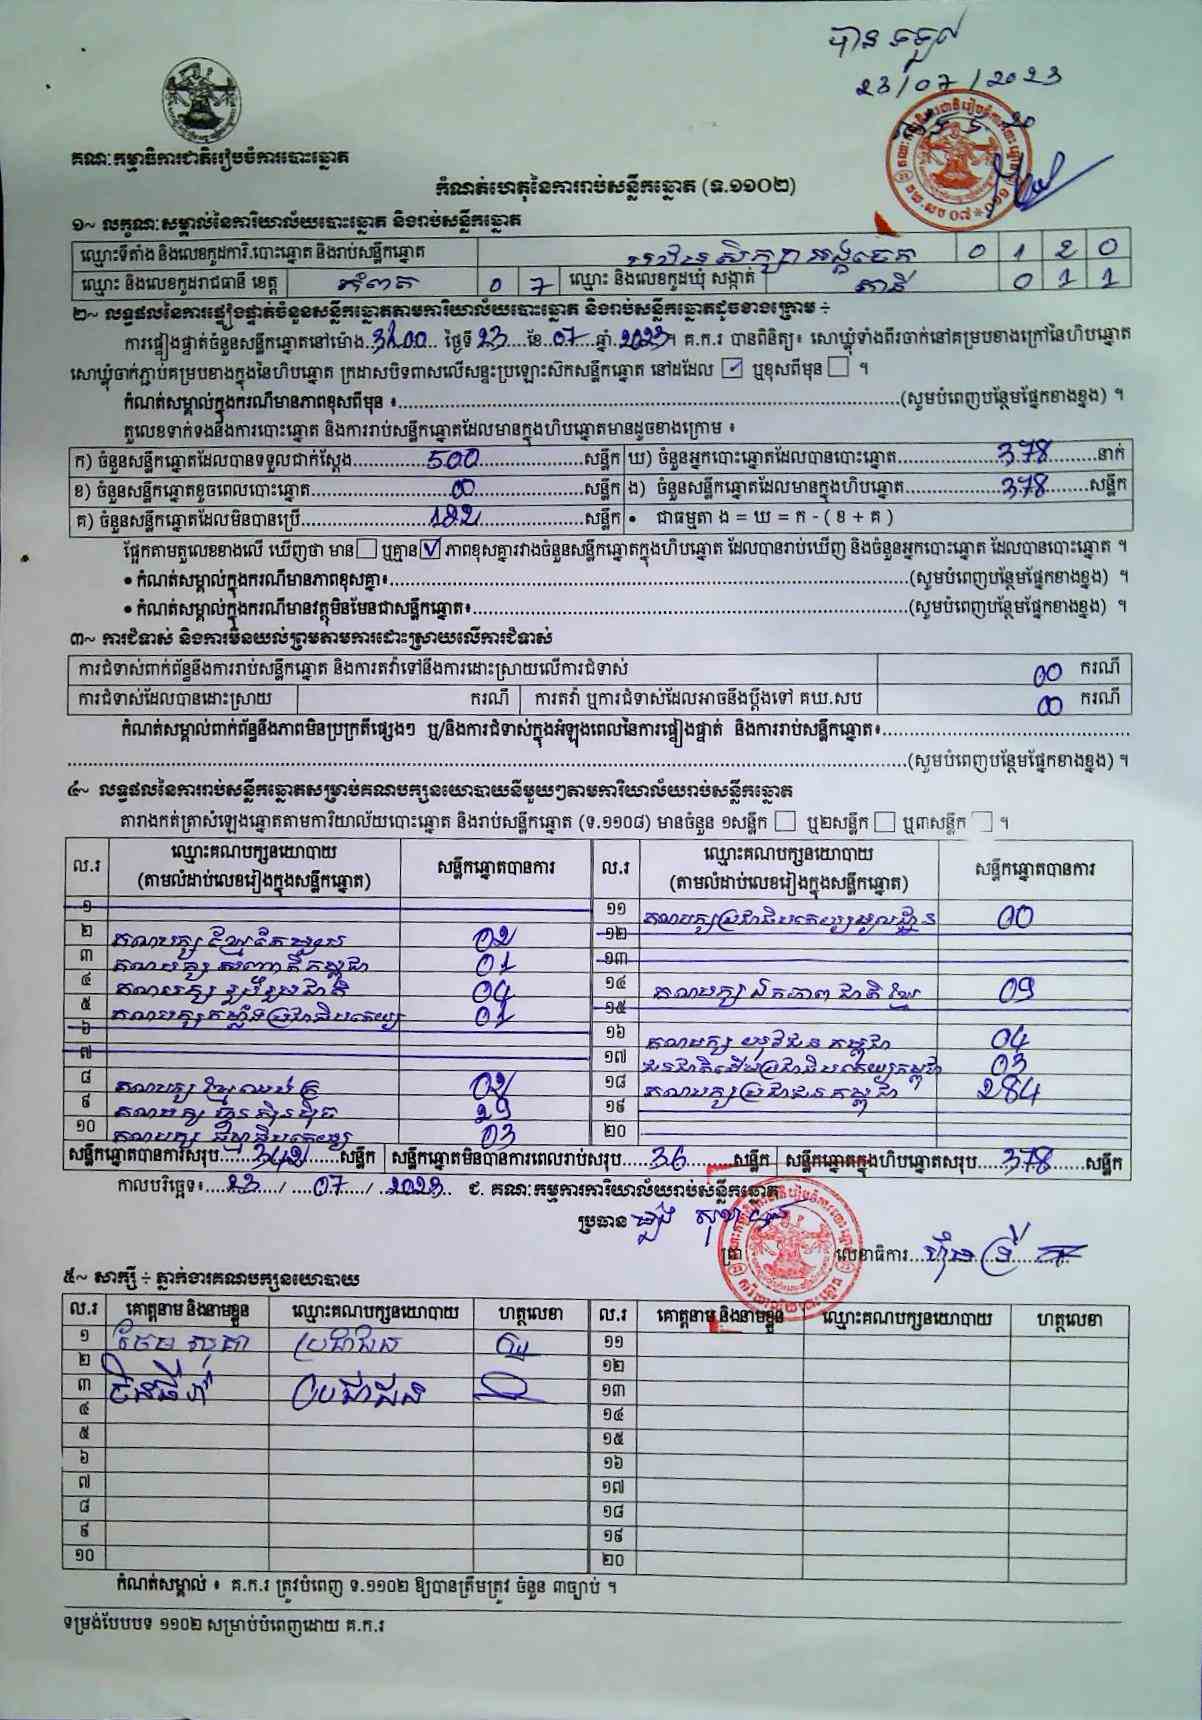 បានទទួល
23/07/2023
គណៈកម្មាធិការជាតិរៀបចំការបោះឆ្នោត
កំណត់ហេតុនៃការរាប់សន្លឹកឆ្នោត (ទ.១១០២)
១~ លក្ខណៈសម្គាល់នៃការិយាល័យបោះឆ្នោត និងរាប់សន្លឹកឆ្នោត
ឈ្មោះទីតាំង និងលេខកូដការិ.បោះឆ្នោត និងរាប់សន្លឹកឆ្នោត 0 1 2 0
ឈ្មោះ និងលេខកូដរាជធានី ខេត្ត កំពត 0 7 ឈ្មោះ និងលេខកូដឃុំ សង្កាត់ តានី 0 1 1
២~ លទ្ធផលនៃការផ្ទៀងផ្ទាត់ចំនួនសន្លឹកឆ្នោតតាមការិយាល័យបោះឆ្នោត និងរាប់សន្លឹកឆ្នោតដូចខាងក្រោម ÷
ការផ្ទៀងផ្ទាត់ចំនួនសន្លឹកឆ្នោតនៅម៉ោង ថ្ងៃទី 23 ខែ 07 ឆ្នាំ 2023។ គ.ក.រ បានពិនិត្យ៖ សោឃ្លុំទាំងពីរចាក់នៅគម្របខាងក្រៅនៃហិបឆ្នោត
សោឃ្លុំចាក់ភ្ជាប់គម្របខាងក្នុងនៃហិបឆ្នោត ក្រដាសបិទពាសលើសន្ទះប្រឡោះស៊កសន្លឹកឆ្នោត នៅដដែល ☑ ឬខុសពីមុន ☐ ។
កំណត់សម្គាល់ក្នុងករណីមានភាពខុសពីមុន ៖..........(សូមបំពេញបន្ថែមផ្នែកខាងខ្នង) ។
តួលេខទាក់ទងនឹងការបោះឆ្នោត និងការរាប់សន្លឹកឆ្នោតដែលមានក្នុងហិបឆ្នោតមានដូចខាងក្រោម ៖
ក) ចំនួនសន្លឹកឆ្នោតដែលបានទទួលជាក់ស្តែង.....500.....សន្លឹក ឃ) ចំនួនអ្នកបោះឆ្នោតដែលបានបោះឆ្នោត.....378.....នាក់
ខ) ចំនួនសន្លឹកឆ្នោតខូចពេលបោះឆ្នោត.....00.....សន្លឹក ង) ចំនួនសន្លឹកឆ្នោតដែលមានក្នុងហិបឆ្នោត.....378.....សន្លឹក
គ) ចំនួនសន្លឹកឆ្នោតដែលមិនបានប្រើ.....122.....សន្លឹក • ជាធម្មតា ង = ឃ = ក - ( ខ + គ )
ផ្អែកតាមតួលេខខាងលើ ឃើញថា មាន ☐ ឬគ្មាន ☑ ភាពខុសគ្នារវាងចំនួនសន្លឹកឆ្នោតក្នុងហិបឆ្នោត ដែលបានរាប់ឃើញ និងចំនួនអ្នកបោះឆ្នោត ដែលបានបោះឆ្នោត ។
• កំណត់សម្គាល់ក្នុងករណីមានភាពខុសគ្នា៖..........(សូមបំពេញបន្ថែមផ្នែកខាងខ្នង) ។
• កំណត់សម្គាល់ក្នុងករណីមានវត្ថុមិនមែនជាសន្លឹកឆ្នោត៖..........(សូមបំពេញបន្ថែមផ្នែកខាងខ្នង) ។
៣~ ការជំទាស់ និងការមិនយល់ព្រមតាមការដោះស្រាយលើការជំទាស់
ការជំទាស់ពាក់ព័ន្ធនឹងការរាប់សន្លឹកឆ្នោត និងការតវ៉ាទៅនឹងការដោះស្រាយលើការជំទាស់ 00 ករណី
ការជំទាស់ដែលបានដោះស្រាយ ករណី ការតវ៉ា ឬការជំទាស់ដែលអាចនឹងប្តឹងទៅ គឃ.សប 00 ករណី
កំណត់សម្គាល់ពាក់ព័ន្ធនឹងភាពមិនប្រក្រតីផ្សេងៗ ឬ/និងការជំទាស់ក្នុងអំឡុងពេលនៃការផ្ទៀងផ្ទាត់ និងការរាប់សន្លឹកឆ្នោត៖..........
..........(សូមបំពេញបន្ថែមផ្នែកខាងខ្នង) ។
៤~ លទ្ធផលនៃការរាប់សន្លឹកឆ្នោតសម្រាប់គណបក្សនយោបាយនីមួយៗតាមការិយាល័យរាប់សន្លឹកឆ្នោត
តារាងកត់ត្រាសំឡេងឆ្នោតតាមការិយាល័យបោះឆ្នោត និងរាប់សន្លឹកឆ្នោត (ទ.១១០៨) មានចំនួន ១សន្លឹក ☐ ឬ២សន្លឹក ☐ ឬ៣សន្លឹក ☐ ។
ល.រ ឈ្មោះគណបក្សនយោបាយ (តាមលំដាប់លេខរៀងក្នុងសន្លឹកឆ្នោត) សន្លឹកឆ្នោតបានការ ល.រ ឈ្មោះគណបក្សនយោបាយ (តាមលំដាប់លេខរៀងក្នុងសន្លឹកឆ្នោត) សន្លឹកឆ្នោតបានការ
១ ១១ គណបក្សប្រជាធិបតេយ្យមូលដ្ឋាន 00
២ គណបក្ស ខ្មែរតែមួយ 02 ១២
៣ គណបក្ស សញ្ជាតិកម្ពុជា 01 ១៣
៤ គណបក្ស រួបរួមជាតិ 04 ១៤ គណបក្ស ឯកភាពជាតិខ្មែរ 09
៥ គណបក្សកម្លាំងប្រជាធិបតេយ្យ 01 ១៥
៦ ១៦ គណបក្ស យុវជនកម្ពុជា 04
៧ ១៧ ជនជាតិដើមប្រជាធិបតេយ្យកម្ពុជា 03
៨ គណបក្ស ខ្មែរឈប់ក្រ 02 ១៨ គណបក្សប្រជាជនកម្ពុជា 284
៩ គណបក្ស ហ៊្វុនស៊ិនប៉ិច 29 ១៩
១០ គណបក្ស ធម្មាធិបតេយ្យ 03 ២០
សន្លឹកឆ្នោតបានការសរុប.....342.....សន្លឹក សន្លឹកឆ្នោតមិនបានការពេលរាប់សរុប.....36.....សន្លឹក សន្លឹកឆ្នោតក្នុងហិបឆ្នោតសរុប.....378.....សន្លឹក
កាលបរិច្ឆេទ៖ 23 / 07 / 2023 ជ. គណៈកម្មការការិយាល័យរាប់សន្លឹកឆ្នោត
ប្រធាន
ត្រា លេខាធិការ
៥~ សាក្សី ÷ ភ្នាក់ងារគណបក្សនយោបាយ
ល.រ គោត្តនាម និងនាមខ្លួន ឈ្មោះគណបក្សនយោបាយ ហត្ថលេខា ល.រ គោត្តនាម និងនាមខ្លួន ឈ្មោះគណបក្សនយោបាយ ហត្ថលេខា
១ ប្រជាជន ១១
២ ១២
៣ ប្រជាជន ១៣
៤ ១៤
៥ ១៥
៦ ១៦
៧ ១៧
៨ ១៨
៩ ១៩
១០ ២០
កំណត់សម្គាល់ ៖ គ.ក.រ ត្រូវបំពេញ ទ.១១០២ ឱ្យបានត្រឹមត្រូវ ចំនួន ៣ច្បាប់ ។
ទម្រង់បែបបទ ១១០២ សម្រាប់បំពេញដោយ គ.ក.រ